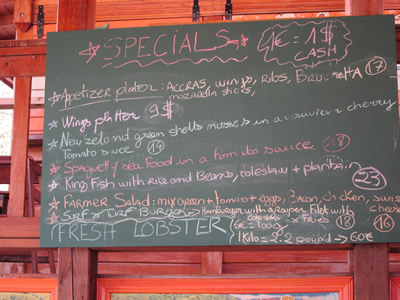 SPECIALS
1€ = 1$
CASH
Appetizer plater: ACCRAS, wings, Ribs, BRUCHETTA 17
mozarella sticks,
Wings platter 9$
New zeland green shells mussels in a cherry
Tomato sauce 14
Spaguetty sea Food in a tomato sauce 18
King Fish with rice and Beans, coleslaw + plantain 23
FARMER Salad: mix green + tomato + eggs, Bacon, chicken, swiss
cheese 16
SURF & TURF BURGER → HAMBURGER with a grouper Filet with
coleslaw & FRIES 18
(FRESH LOBSTER) 6€ = 100g
1 Kilo = 2.2 pound → 60€